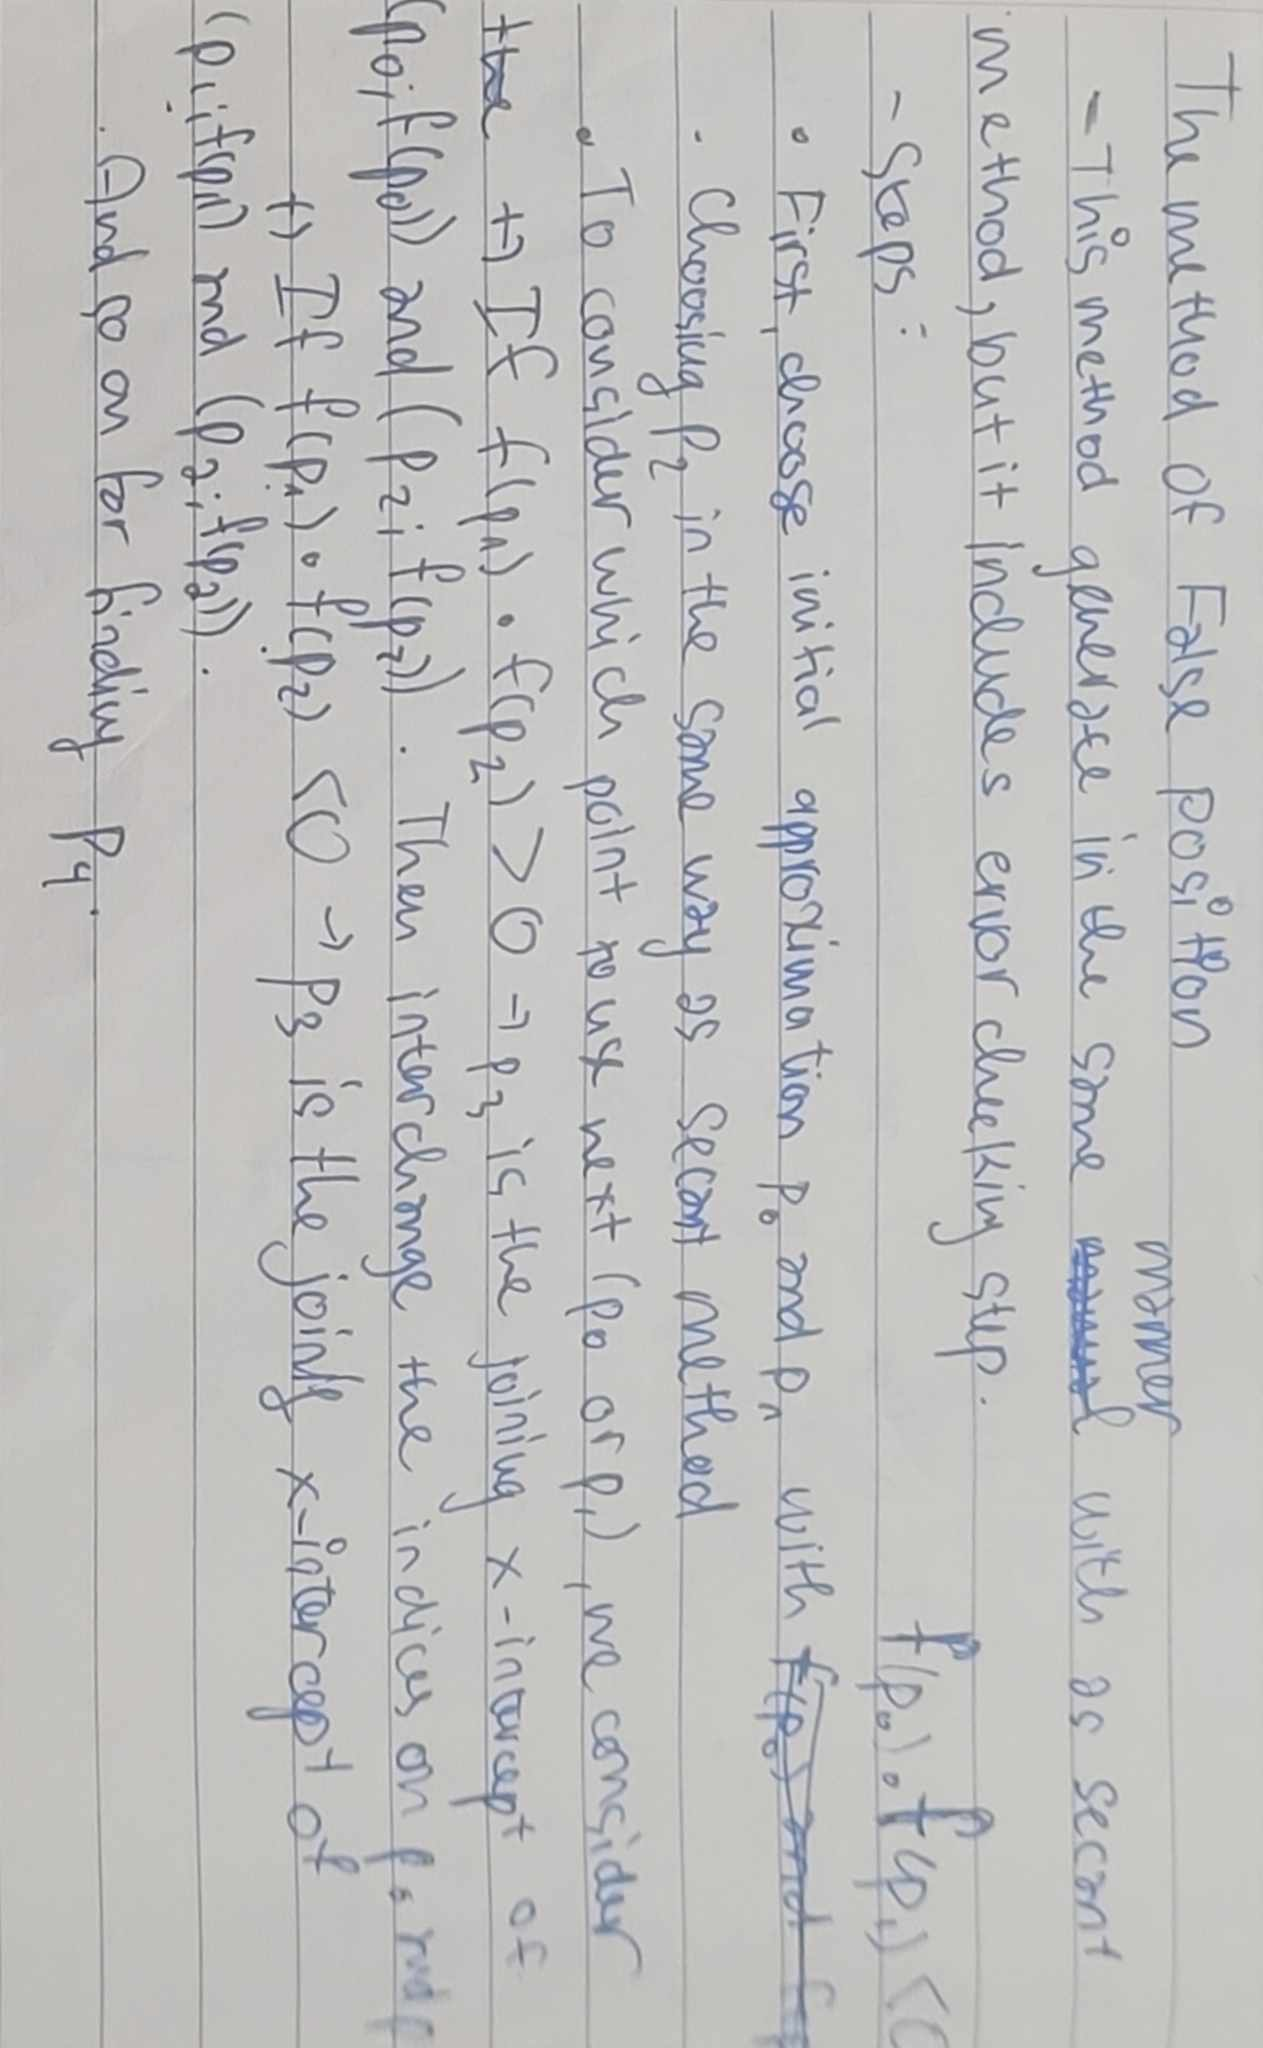 The method of False position
manner
- This method generate in the same with as secant
method, but it includes error checking step.
- Steps:
f(p₀).f(p₁) <0
• First, choose initial approximation p₀ and p₁ with
• Choosing p₂ in the same way as secant method
• To consider which point to use next (p₀ or p₁), we consider
+) If f(p₁) . f(p₂) > 0 → p₃ is the joining x-intercept of
(p₀; f(p₀)) and (p₂; f(p₂)). Then interchange the indices on p₀ and
+) If f(p₁) . f(p₂) <0 → p₃ is the joining x-intercept of
(p₁; f(p₁)) and (p₂; f(p₂)).
. And so on for finding p₄.